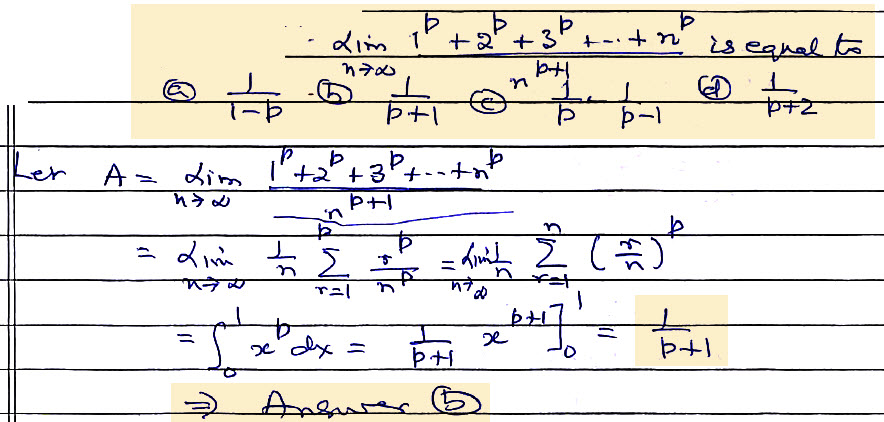 Lim n→∞ (1^p + 2^p + 3^p + --- + n^p) / n^(p+1) is equal to
(a) 1/(1-p) (b) 1/(p+1) (c) 1/p - 1/(p-1) (d) 1/(p+2)
Let A = Lim n→∞ (1^p + 2^p + 3^p + --- + n^p) / n^(p+1)
= Lim n→∞ 1/n ∑_{r=1}^{p} r^p/n^p = Lim n→∞ 1/n ∑_{r=1}^{n} (r/n)^p
= ∫_0^1 x^p dx = 1/(p+1) x^(p+1)]_0^1 = 1/(p+1)
⇒ Answer (b)